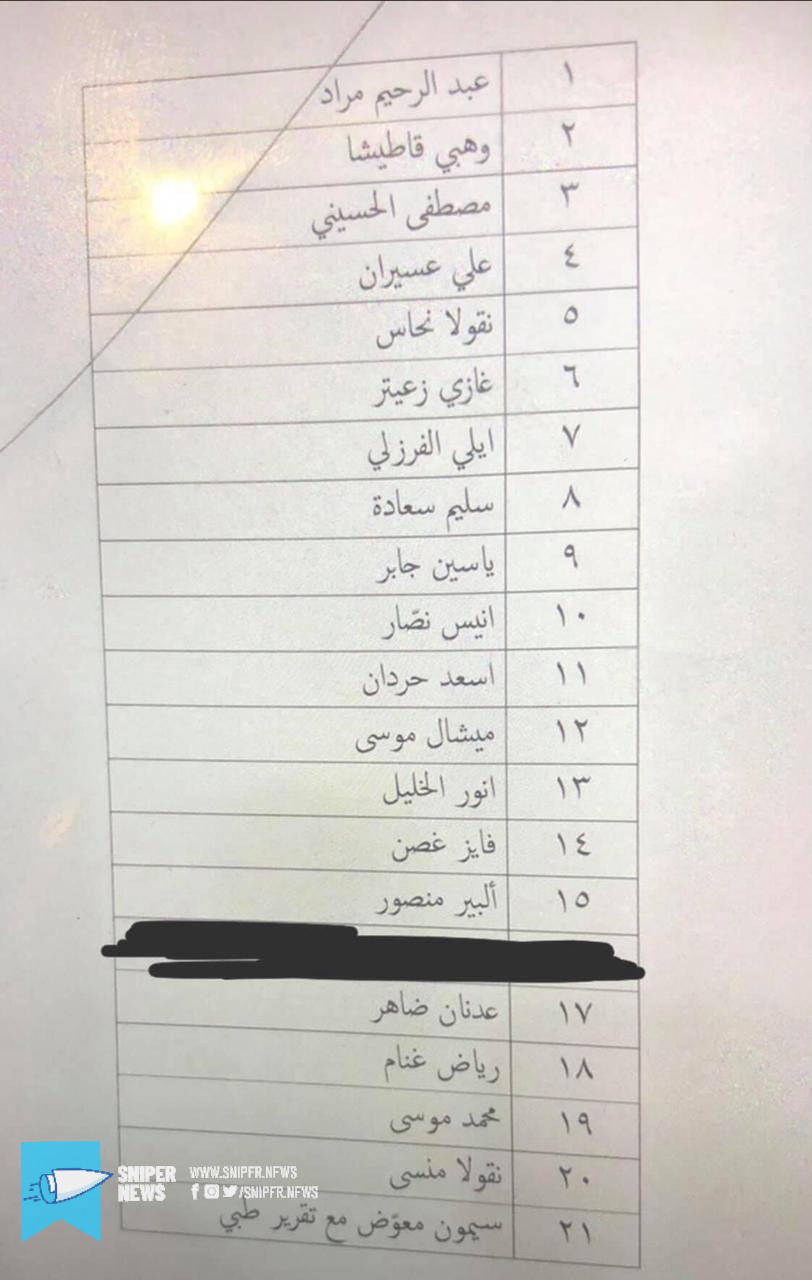 ١ عبد الرحيم مراد
٢ وهبي قاطيشا
٣ مصطفى الحسيني
٤ علي عسيران
٥ نقولا نحاس
٦ غازي زعيتر
٧ ايلي الفرزلي
٨ سليم سعادة
٩ ياسين جابر
١٠ انيس نصّار
١١ اسعد حردان
١٢ ميشال موسى
١٣ انور الخليل
١٤ فايز غصن
١٥ ألبير منصور
١٧ عدنان ضاهر
١٨ رياض غنام
١٩ محمد موسى
٢٠ نقولا منسى
٢١ سيمون معوّض مع تقرير طبي
SNIPER NEWS
WWW.SNIPFR.NFWS
/SNIPFR.NFWS